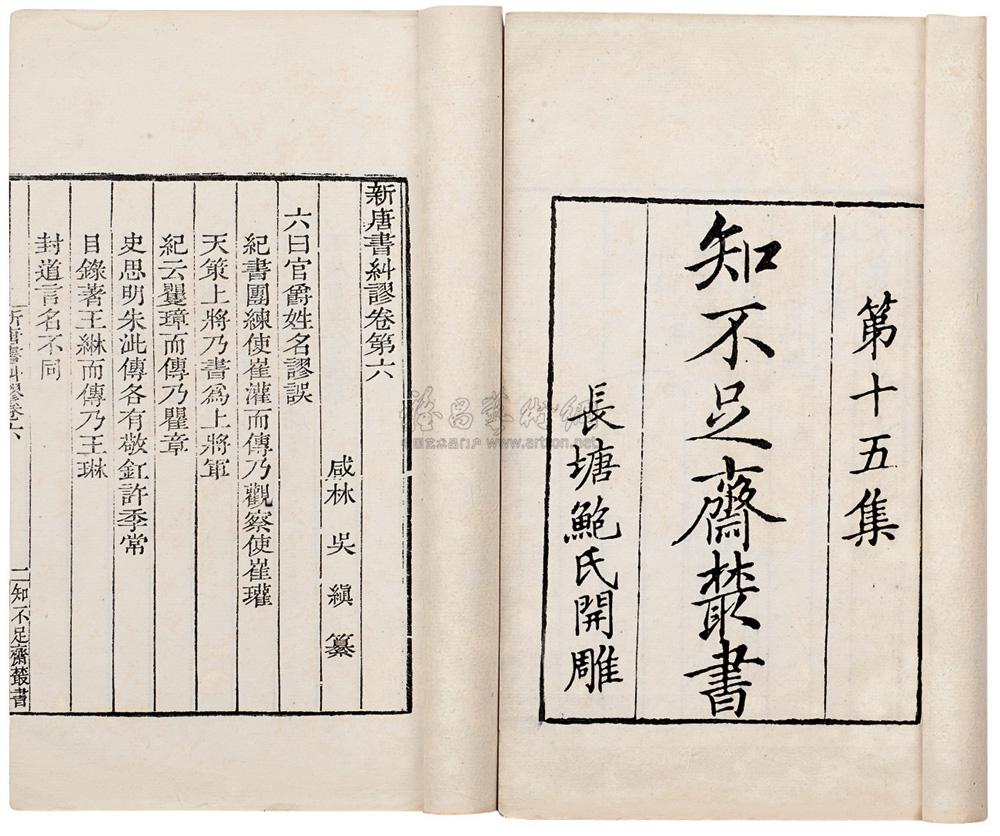 第十五集
知不足齋叢書
長塘鮑氏開雕
新唐書糾謬卷第六
咸林 吳縝 纂
六曰官爵姓名謬誤
紀書團練使崔灌而傳乃觀察使崔瓘
天策上將乃書爲上將軍
紀云瞿璋而傳乃瞿章
史思明朱泚傳各有敬釭許季常
目錄著王綝而傳乃王琳
封道言名不同
新唐書糾謬卷六
一
知不足齋叢書
www.artron.net